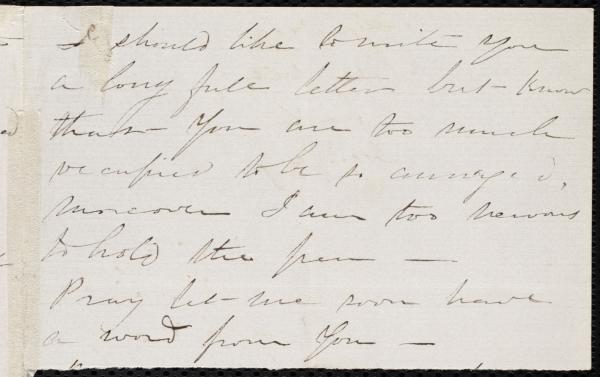 I should like to write You
a long full letter but know
that You are too much
occupied to be so annoyed,
moreover I am too nervous
to hold the pen —
Pray let me soon have
a word from You —